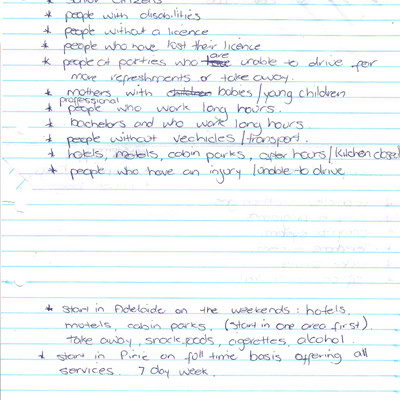 * senior citizens
* people with disabilities
* people without a licence
* people who have lost their licence
* people at parties who are unable to drive for
more refreshments or take away.
* mothers with children babies/young children
professional
* people who work long hours.
* bachelors and who work long hours
* people without vechicles/transport.
* hotels, motels, cabin parks, after hours/kitchen closed
* people who have an injury/unable to drive
* start in Adelaide on the weekends: hotels,
motels, cabin parks. (start in one area first).
take away, snack foods, cigarettes, alcohol.
* start in Pirie on full time basis offering all
services. 7 day week.